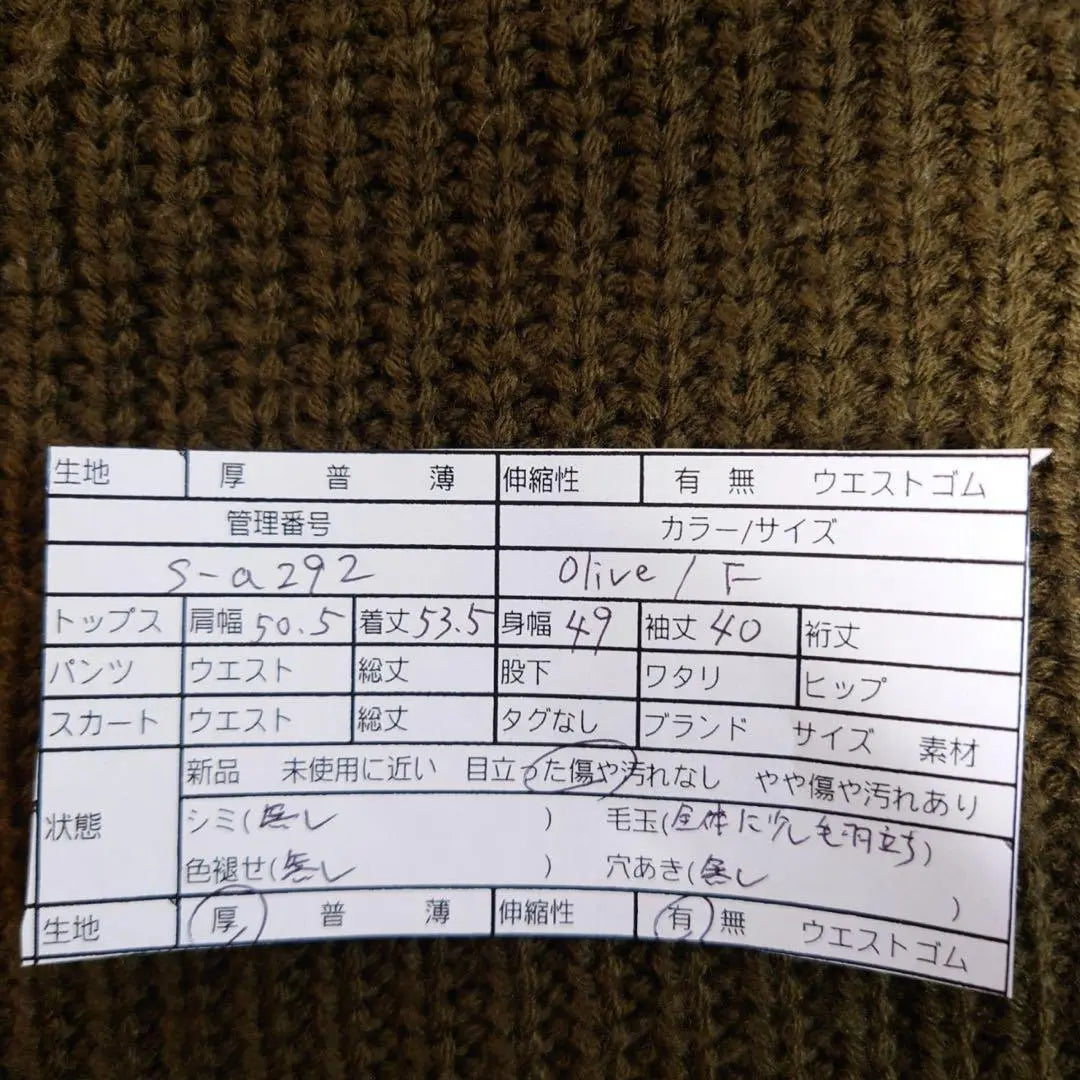 生地 厚 普 薄 伸縮性 有 無 ウエストゴム
管理番号 カラー/サイズ
S-a292 Olive / F
トップス 肩幅 50.5 着丈 53.5 身幅 49 袖丈 40 裄丈
パンツ ウエスト 総丈 股下 ワタリ ヒップ
スカート ウエスト 総丈 タグなし ブランド サイズ 素材
状態 新品 未使用に近い 目立った傷や汚れなし やや傷や汚れあり
シミ(無し ) 毛玉(全体に少し毛羽立ち)
色褪せ(無し ) 穴あき(無し )
生地 厚 普 薄 伸縮性 有 無 ウエストゴム